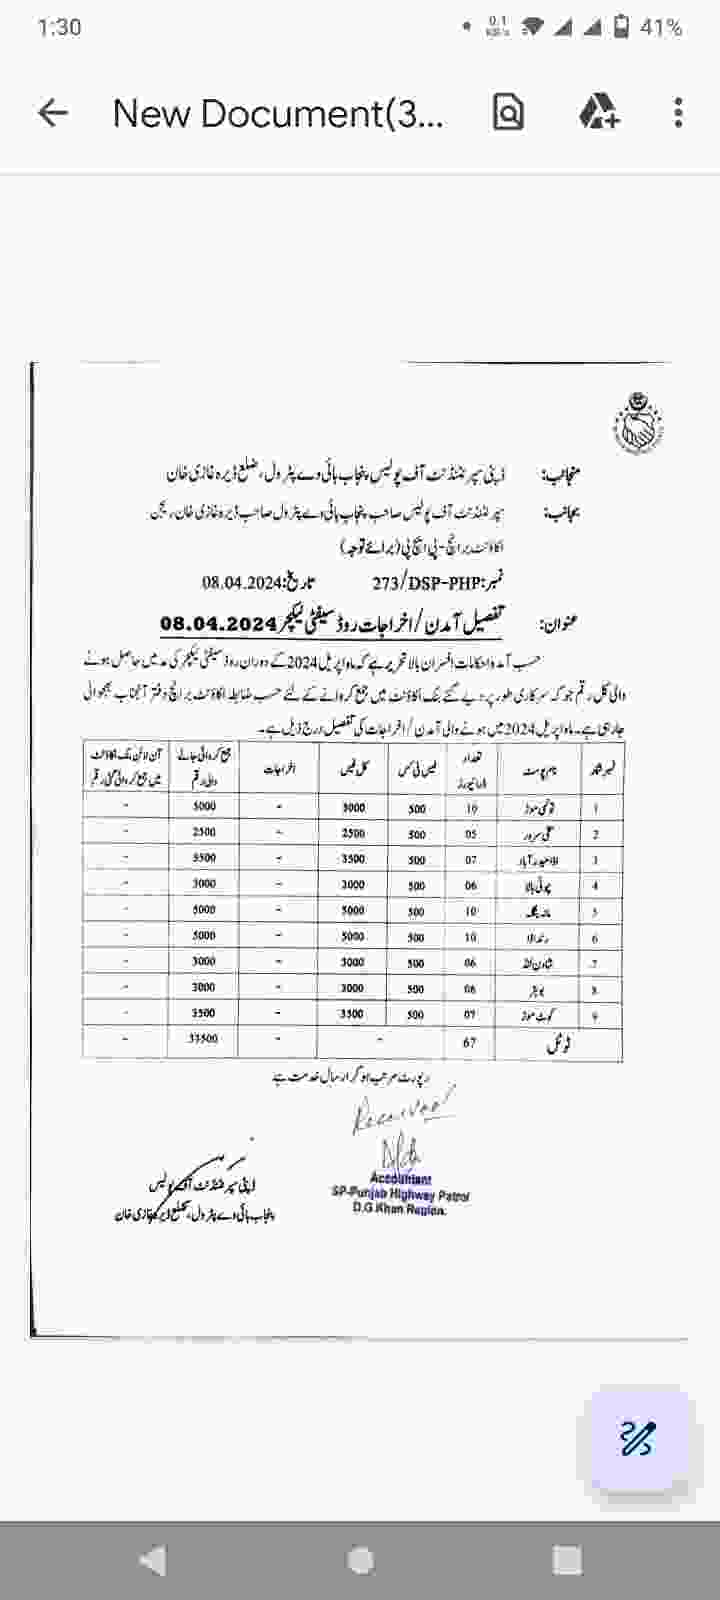 1:30
0.1
KB/s
41%
New Document(3...
منجانب: ڈپٹی سپرنٹنڈنٹ آف پولیس پنجاب ہائی وے پٹرول، ضلع ڈیرہ غازی خان
بجانب: سپرنٹنڈنٹ آف پولیس صاحب پنجاب ہائی وے پٹرول صاحب ڈیرہ غازی خان، ریجن
اکاؤنٹ برانچ-پی ایچ پی (برائے توجہ)
نمبر:273/DSP-PHP تاریخ:08.04.2024
عنوان: تفصیل آمدن/اخراجات روڈ سیفٹی لیکچر 08.04.2024
حسب آمدہ احکامات افسران بالا تحریر ہے کہ ماہ اپریل 2024 کے دوران روڈ سیفٹی لیکچر کی مد میں حاصل ہونے
والی کل رقم جو کہ سرکاری طور پر دیے گئے بنک اکاؤنٹ میں جمع کروانے کے لئے حسب ضابطہ اکاؤنٹ برانچ دفتر آنجناب بھجوائی
جا رہی ہے۔ ماہ اپریل 2024 میں ہونے والی آمدن/اخراجات کی تفصیل درج ذیل ہے۔
نمبر شمار نام پوسٹ تعداد ڈرائیورز فیس فی کس کل فیس اخراجات جمع کروائی جانے والی رقم آن لائن بنک اکاؤنٹ میں جمع کروائی گئی رقم
1 موڑ 10 500 5000 - 5000 -
2 سخی سرور 05 500 2500 - 2500 -
3 اڈا حیدرآباد 07 500 3500 - 3500 -
4 چوٹی بالا 06 500 3000 - 3000 -
5 مانہ بنگلہ 10 500 5000 - 5000 -
6 رنداڈا 10 500 5000 - 5000 -
7 شادن لنڈ 06 500 3000 - 3000 -
8 06 500 3000 - 3000 -
9 کوٹ موڑ 07 500 3500 - 3500 -
ٹوٹل 67 - - 33500 -
رپورٹ مرتب ہو کر ارسال خدمت ہے
Received
Accountant
SP-Punjab Highway Patrol
D.G.Khan Region.
ڈپٹی سپرنٹنڈنٹ آف پولیس
پنجاب ہائی وے پٹرول، ضلع ڈیرہ غازی خان